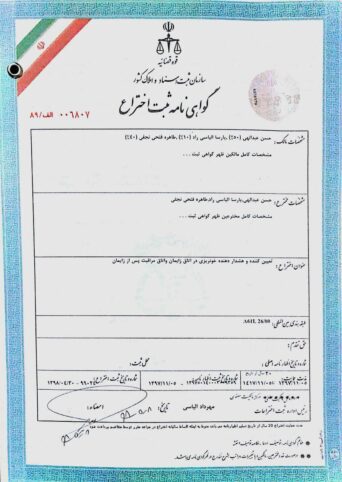 قوه قضائیه
سازمان ثبت اسناد و املاک کشور
گواهی نامه ثبت اختراع
۰۰۶۸۰۷ الف/۸۹
مشخصات مالک: حسن عبدالهی (۵۰٪)، پارسا الیاسی راد (۱۰٪)، طاهره فتحی نجفی (۴۰٪)
مشخصات کامل مالکین ظهر گواهی ثبت ...
مشخصات مخترع: حسن عبدالهی، پارسا الیاسی راد، طاهره فتحی نجفی
مشخصات کامل مخترعین ظهر گواهی ثبت ...
عنوان اختراع: تعیین کننده و هشدار دهنده خونریزی در اتاق زایمان واتاق مراقبت پس از زایمان
طبقه بندی بین المللی: A61L 26/00
حق تقدم:
شماره و تاریخ اظهارنامه اصلی:
محل ثبت:
شماره و تاریخ ثبت اظهارنامه
شماره و تاریخ ثبت اختراع
۱۳۹۷/۱۱/۰۵
۱۴۱۷/۱۱/۰۵
۱۳۹۷/۱۱/۰۵
۱۳۹۸/۰۴/۳۰
رئیس اداره ثبت اختراعات
مهرداد الیاسی
تاریخ:
امضاء: